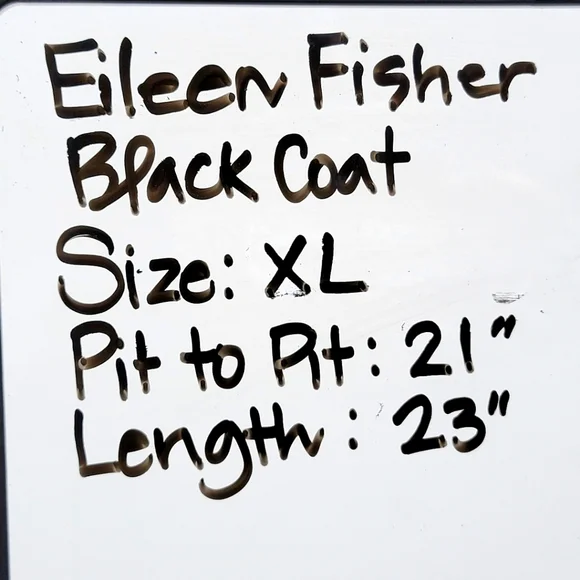 Eileen Fisher
Black Coat
Size: XL
Pit to Pit: 21"
Length: 23"